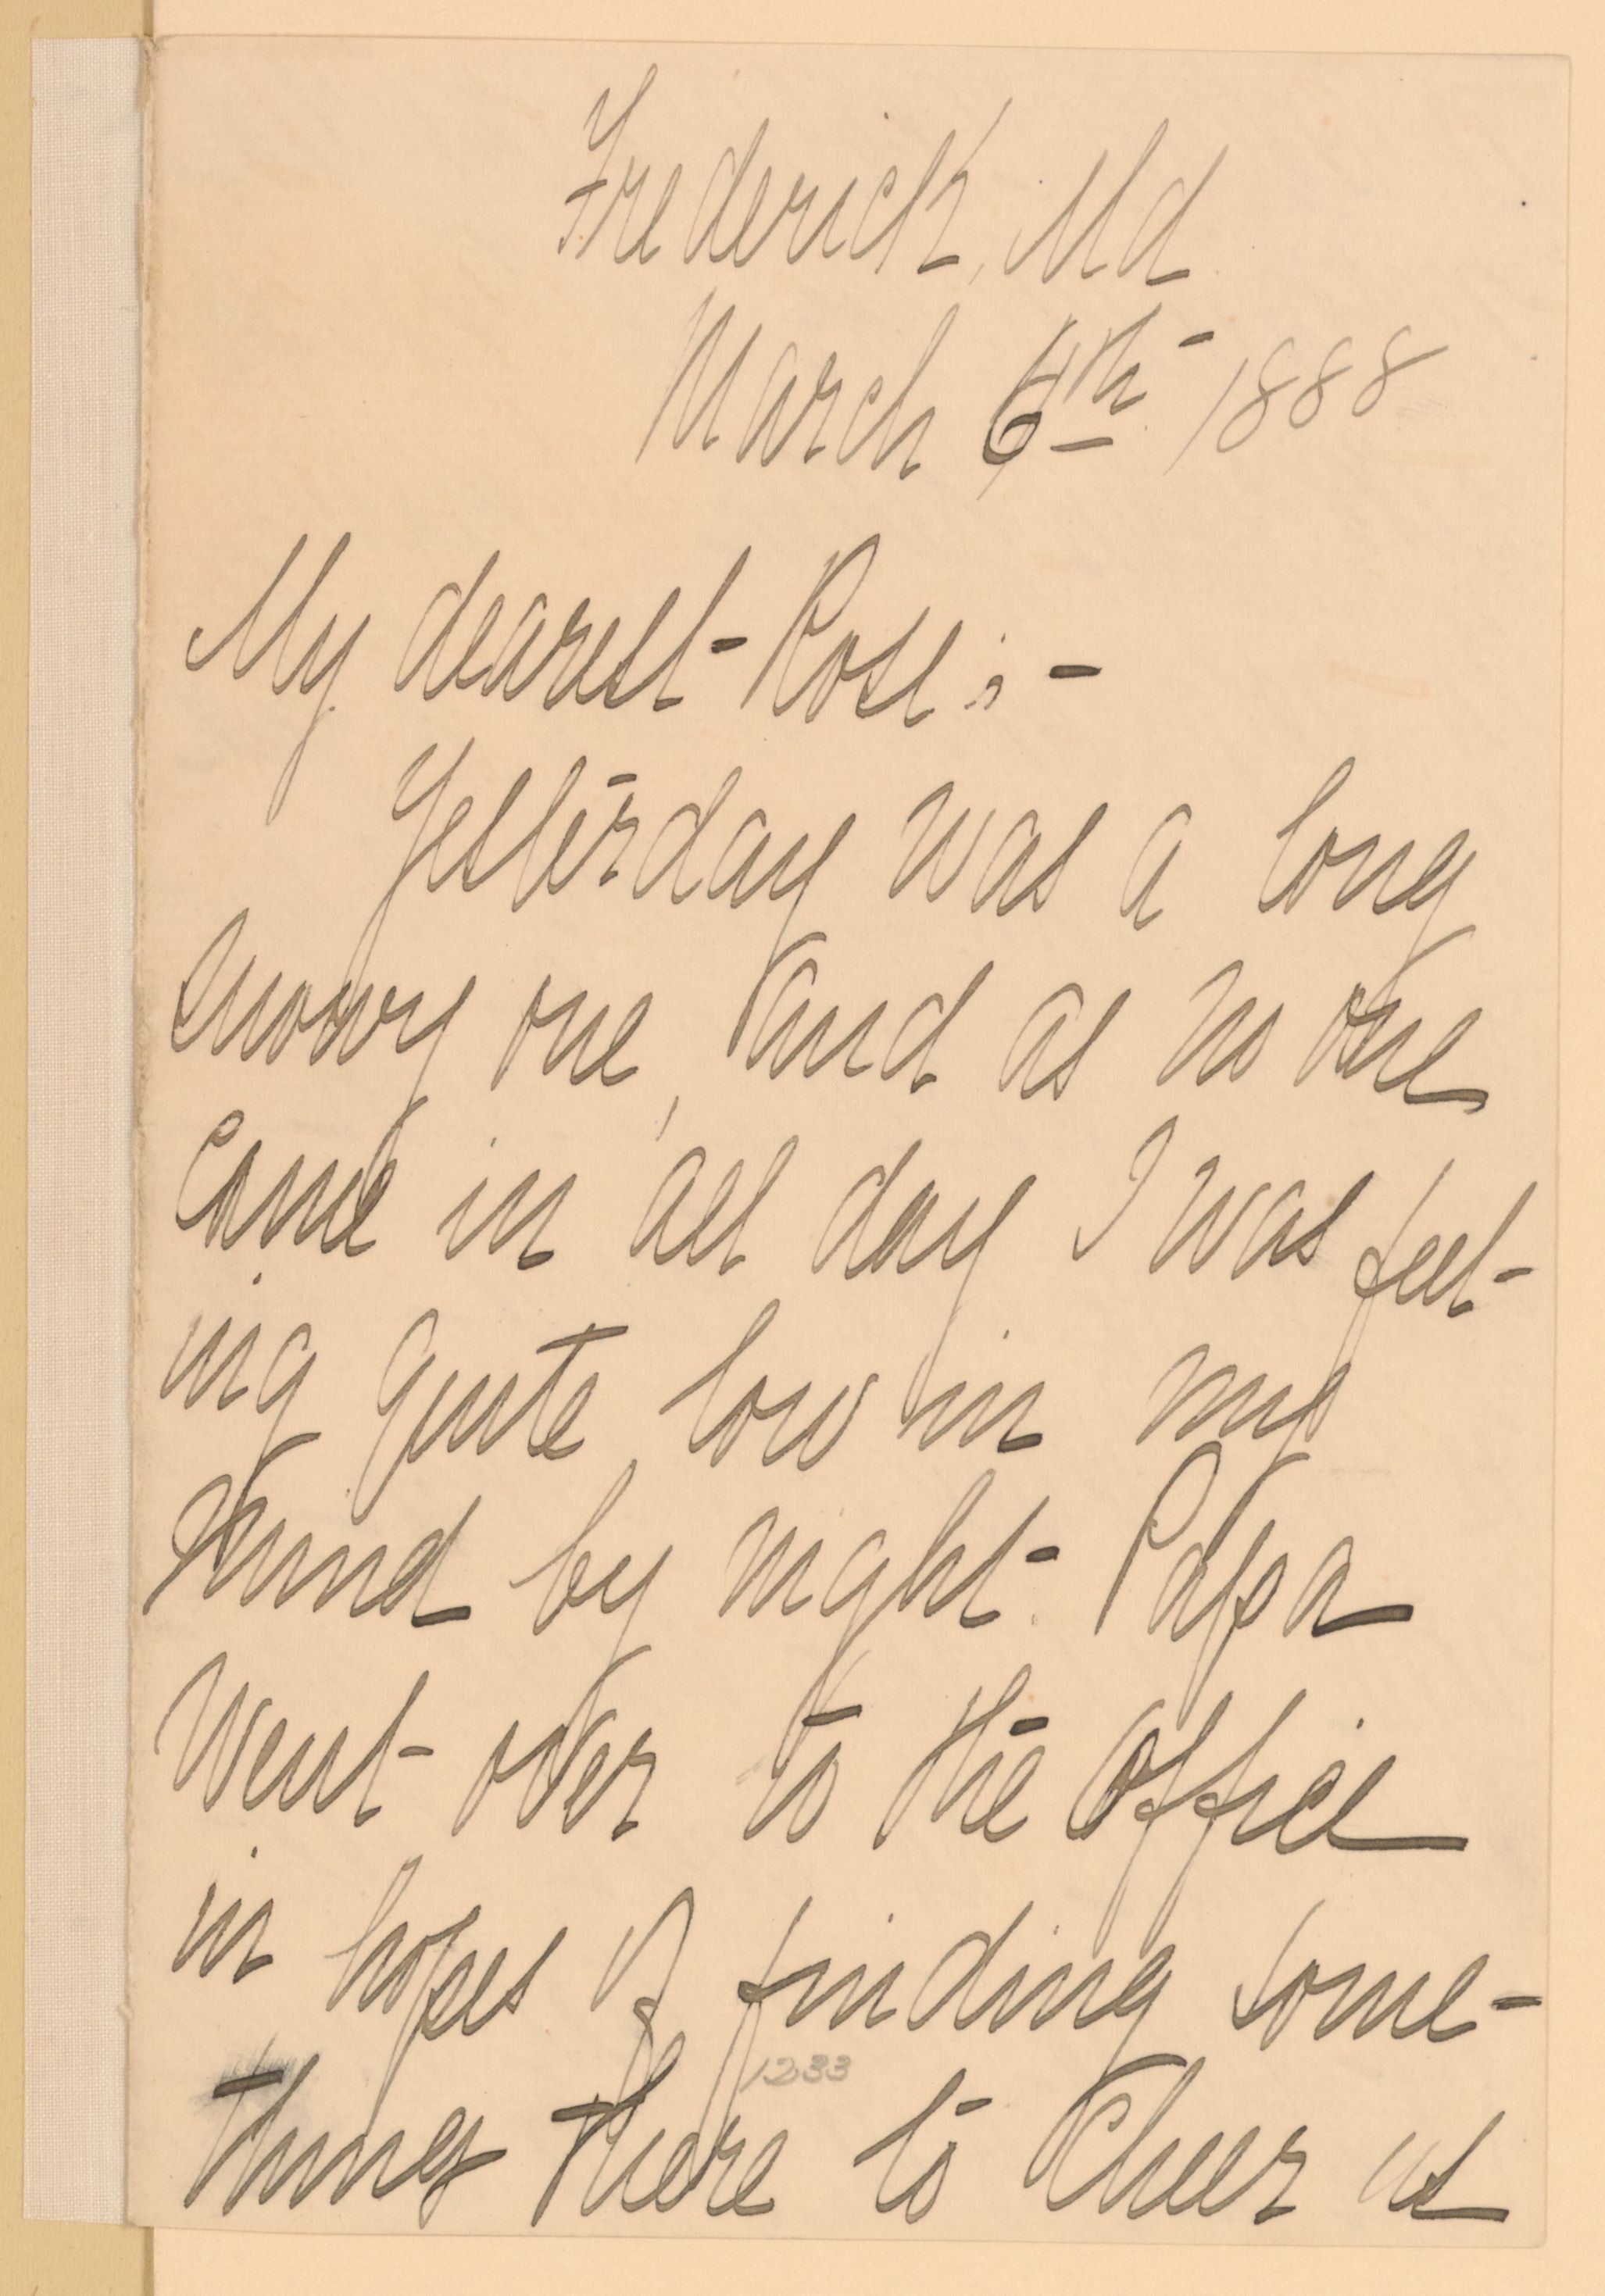 Frederick, Md
March 6th 1888
My dearest Rose:-
Yesterday was a long
snowy one, and as no one
came in all day I was feel-
ing quite low in my
mind by night. Papa
went over to the office
in hopes of finding some-
thing there to cheer us
1233